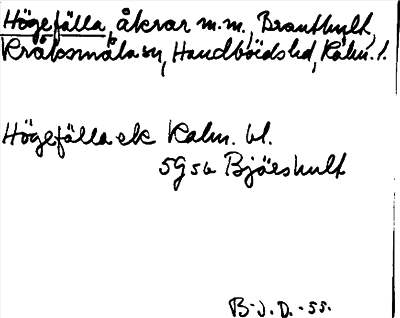 Högefälla, åkrar m.m., Branthult,
Kråksmåla sn, Handbörds hd, Kalm. l.
Högefälla ek Kalm. bl.
5G 5b Bjärshult
B-J.D.-55.